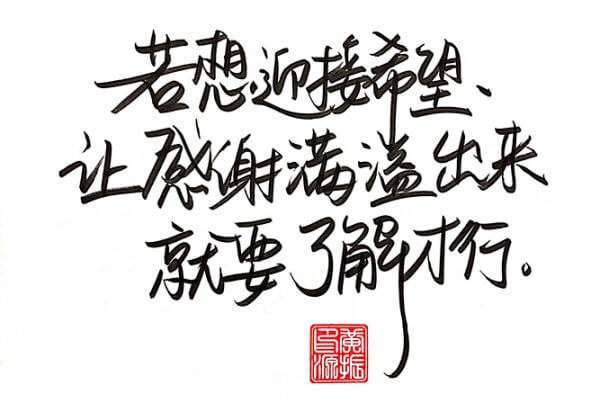 若想迎接希望、
让感谢满溢出来
就要了解才行。
黄振源印